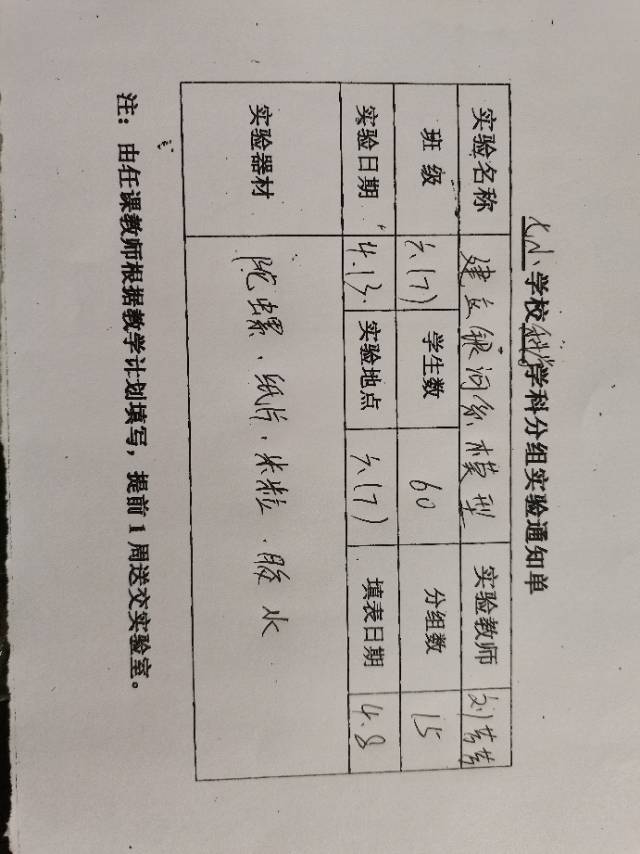 小学校科学学科分组实验通知单
实验名称 建立银河系模型 实验教师 刘芳芳
班级 六(7) 学生数 60 分组数 15
实验日期 4.13. 实验地点 六(7) 填表日期 4.8
实验器材 陀螺、纸片、米粒、胶水
注：由任课教师根据教学计划填写，提前1周送交实验室。